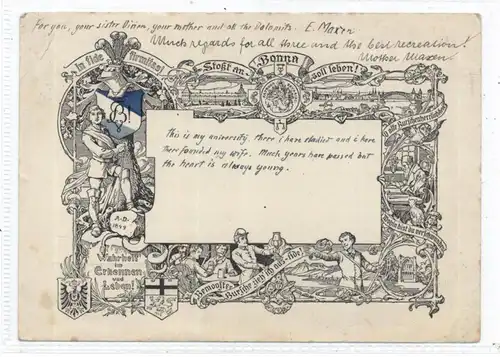 For you, your sister Vivien, your mother and all the Dolomits. E. Maxen
Much regards for all three and the best recreation!
Mother Maxen
in fide firmitas!
Stoßt an
Bonna
soll leben!
This is my university, there I have studiet and i have
there founded my wife. Much years have passed but
the heart is always young.
A.D.
Wahrheit
im
Erkennen
und
Leben!
Bemooster Bursche zieh ich aus. Ade!